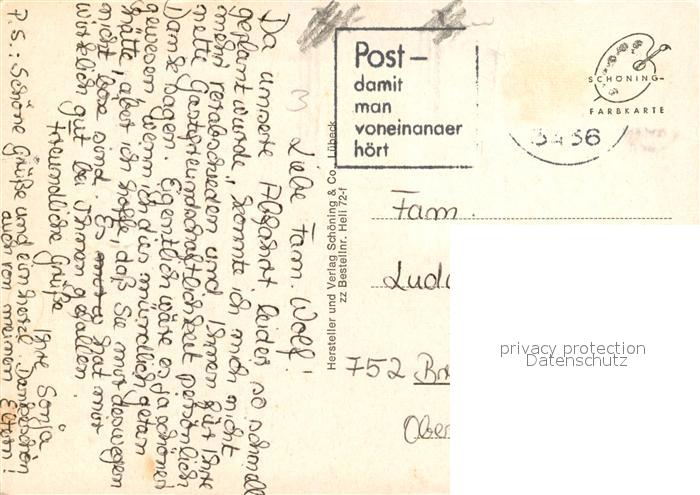 Liebe Fam. Wolf!
Da unsere Abfahrt leider so schnell
geplant wurde, konnte ich mich nicht
mehr verabschieden und Ihnen für Ihre
nette Gastfreundschaftlichkeit persönlich
Danke sagen. Eigentlich wäre es ja schöner
gewesen, wenn ich dies mündlich getan
hätte, aber ich hoffe, daß Sie mir deswegen
nicht böse sind. Es hat mir
wirklich gut bei Ihnen gefallen.
Freundliche Grüße
Ihre Sonja
P.S.: Schöne Grüße und ein herzl. Dankeschön
auch von meinen Eltern!
Hersteller und Verlag Schöning & Co., Lübeck
zz Bestellnr. Hell 72-f
Post –
damit
man
voneinander
hört
SCHÖNING-
FARBKARTE
Fam.
752
privacy protection
Datenschutz